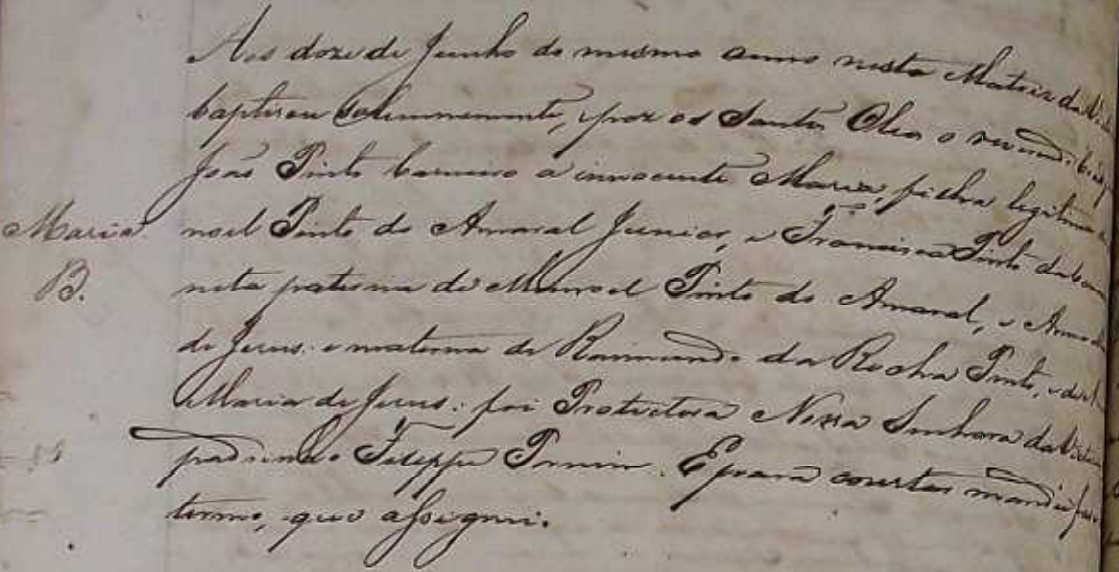 Aos doze de Junho do mesmo anno nesta Matriz da
baptisou solemnemente, e poz os Santos Oleos o
João Pinto a innocente Maria, filha legitima
Maria. noel Pinto do Amaral Junior, e Francisca Pinto
B. neta paterna de Manoel Pinto do Amaral, e
de Jesus: e materna de Raimundo da Rocha Pinto, e de
Maria de Jesus: foi Protectora Nossa Senhora da
padrinho Felippe. E para constar mandei
termo, que assignei.